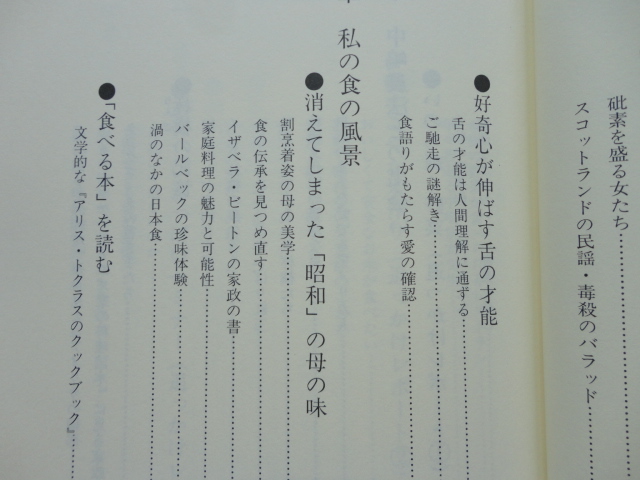 砒素を盛る女たち
スコットランドの民謡・毒殺のバラッド
●好奇心が伸ばす舌の才能
舌の才能は人間理解に通ずる
ご馳走の謎解き
食語りがもたらす愛の確認
私の食の風景
●消えてしまった「昭和」の母の味
割烹着姿の母の美学
食の伝承を見つめ直す
イザベラ・ビートンの家政の書
家庭料理の魅力と可能性
バールベックの珍味体験
渦のなかの日本食
●「食べる本」を読む
文学的な『アリス・トクラスのクックブック』